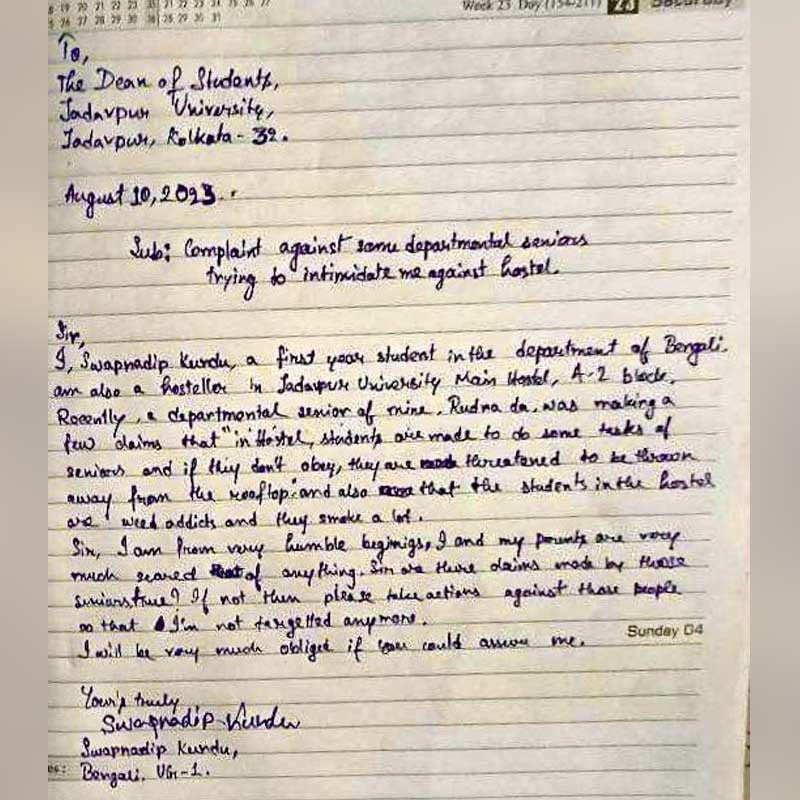 19 20 21 22 23
26 27 28 29 30 31 28 29 30 31
Week 23 Day (154-211) 23 Saturday
To,
The Dean of Students,
Jadavpur University,
Jadavpur, Kolkata - 32.
August 10, 2023.
Sub: Complaint against some departmental seniors
trying to intimidate me against hostel.
Sir,
I, Swapnadip Kundu, a first year student in the department of Bengali.
am also a hosteller in Jadavpur University Main Hostel, A-2 block.
Recently, a departmental senior of mine, Rudra da, was making a
few claims that "in Hostel, students are made to do some tasks of
seniors and if they don't obey, they are threatened to be thrown
away from the rooftop" and also that the students in the hostel
are weed addicts and they smoke a lot.
Sir, I am from very humble beginigs, I and my parents are very
much scared of anything. Sir are there claims made by those
seniors true? If not then please take actions against those people
so that I'm not targetted anymore.
Sunday 04
I will be very much obliged if you could assure me.
Your's truly
Swapnadip Kundu
Swapnadip Kundu,
Bengali, UG-1.